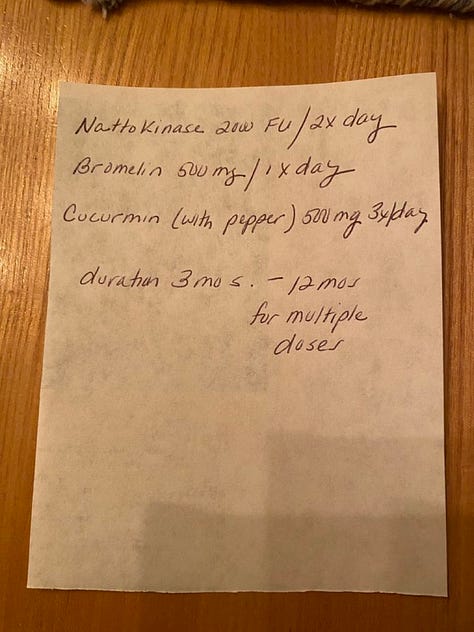 Nattokinase 2000 FU/2x day
Bromelin 500 mg/1x day
Cucurmin (with pepper) 500 mg 3x/day
duration 3 mos. - 12 mos
for multiple
doses